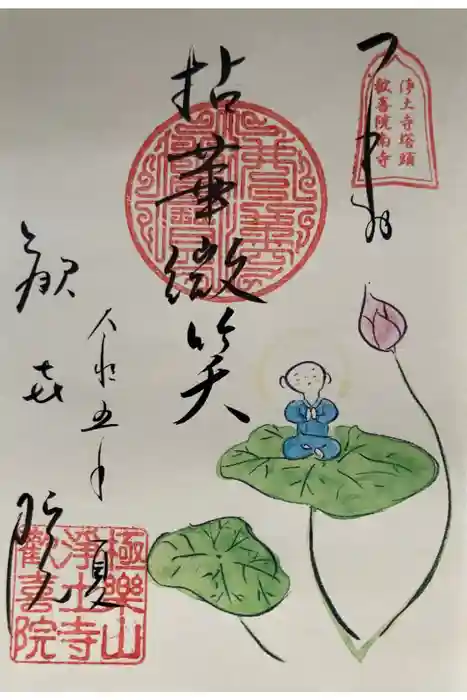 浄土寺塔頭
歓喜院南寺
拈華微笑
令和五年夏
歓喜院
極樂山
淨土寺
歡喜院